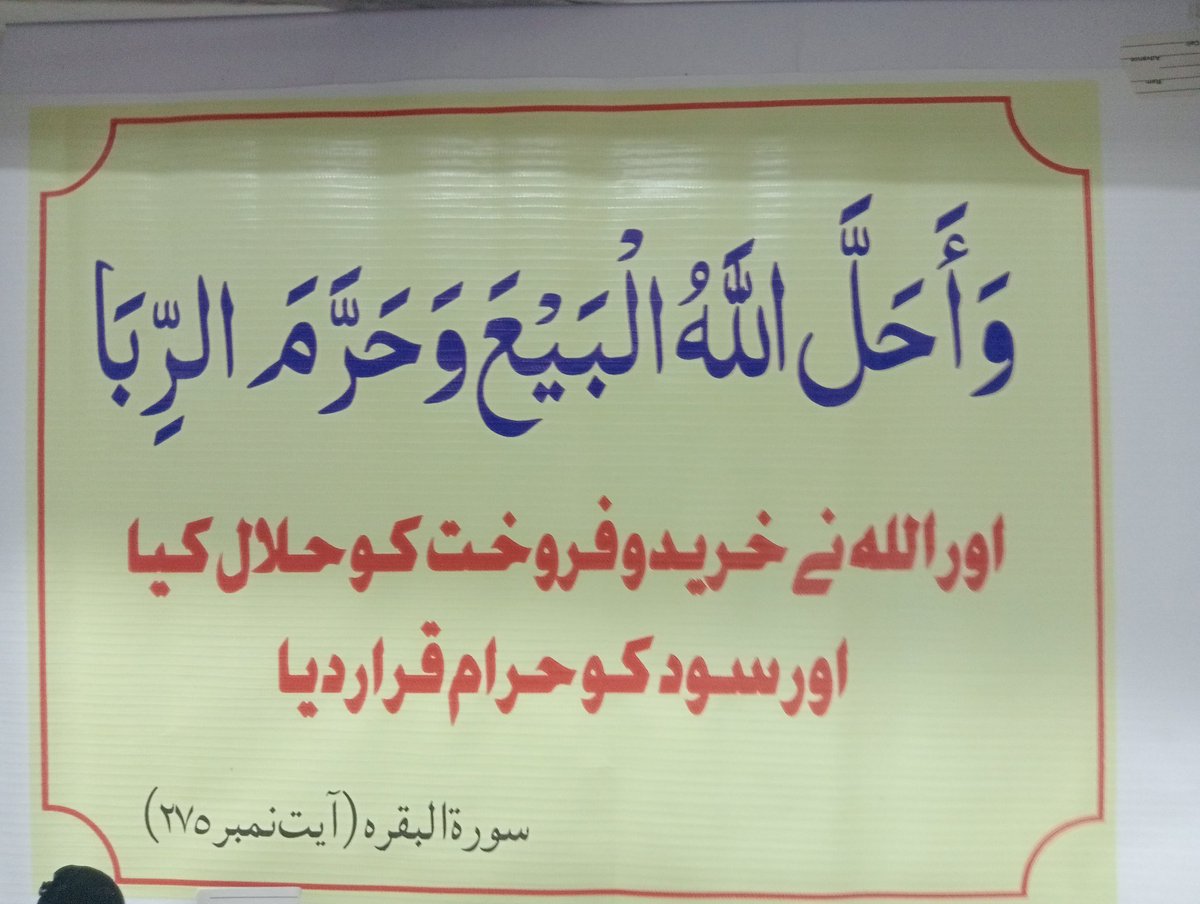 وَأَحَلَّ اللَّهُ الْبَيْعَ وَحَرَّمَ الرِّبَا
اور اللہ نے خرید و فروخت کو حلال کیا
اور سود کو حرام قرار دیا
سورۃ البقرہ (آیت نمبر ۲۷۵)
Advance